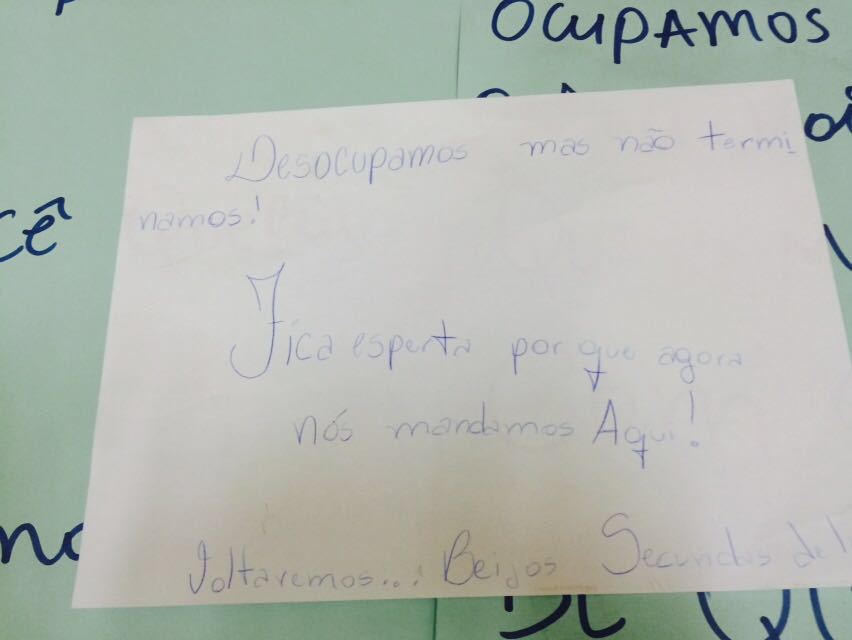 OCUPAMOS
Desocupamos mas não termi
namos!
cê
Fica esperta por que agora
nós mandamos Aqui!
Voltaremos... Beijos